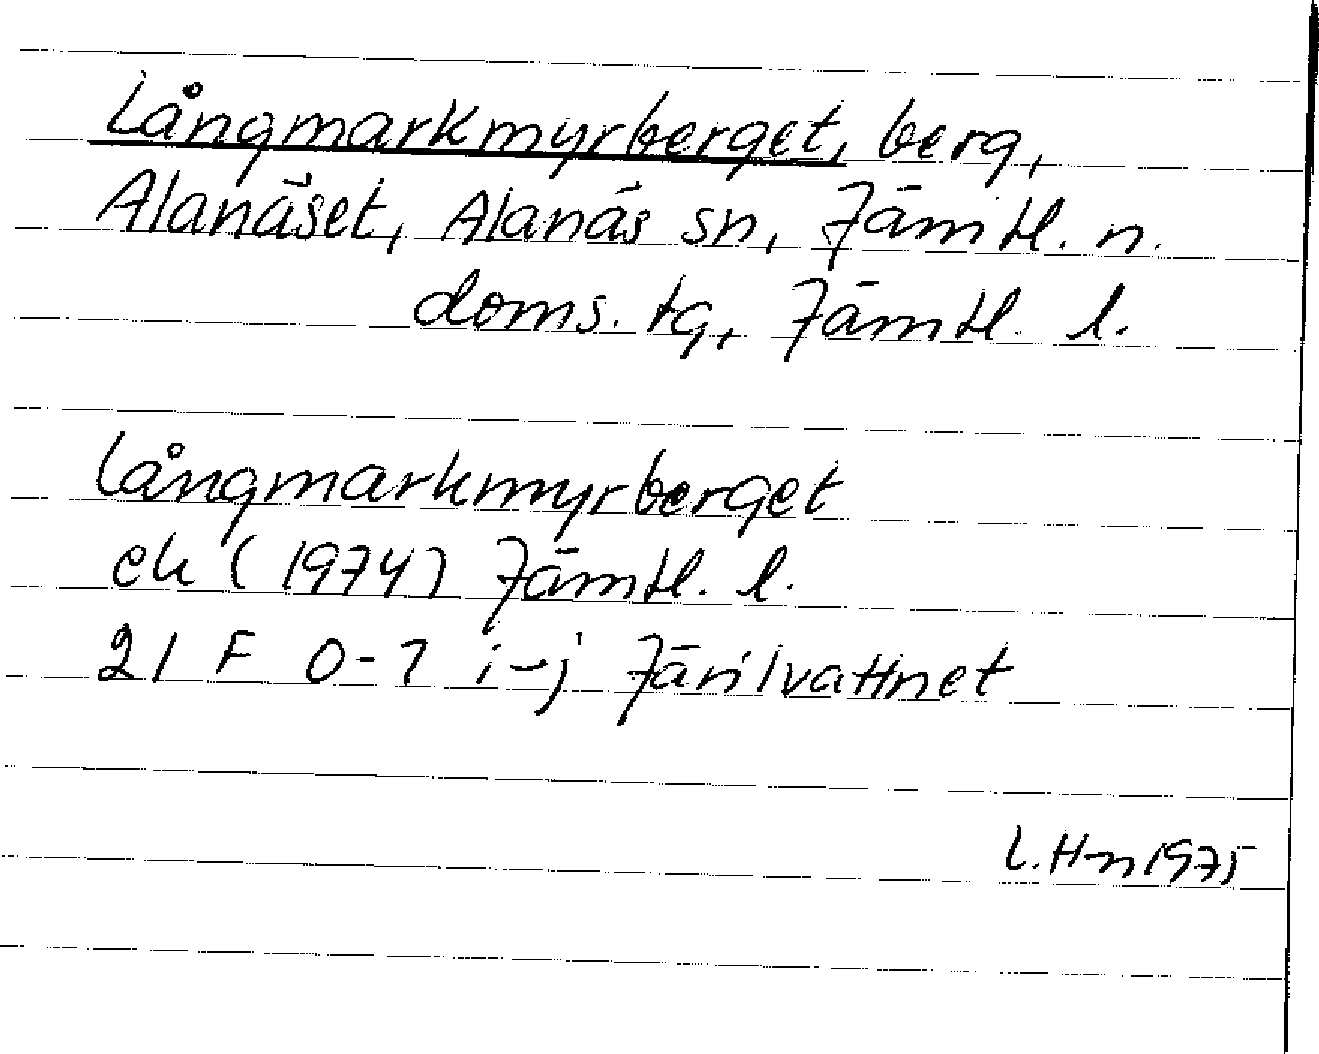 Långmarkmyrberget, berg,
Alanäset, Alanäs sn, Jämtl. n.
doms. tg, Jämtl. l.
Långmarkmyrberget
ek (1974) Jämtl. l.
21 F 0-1 i-j Järilvattnet
L. H-n 1975